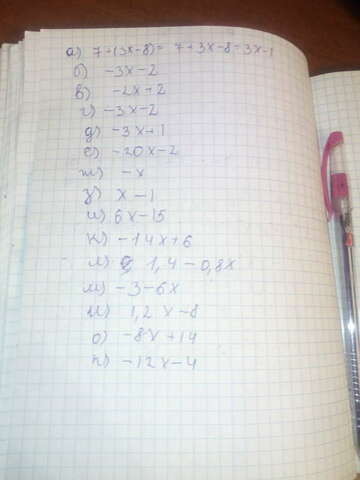 а) 7+(3x-8)= 7+3x-8=3x-1
б) -3x-2
в) -2x+2
г) -3x-2
д) -3x+1
е) -20x-2
ж) -x
з) x-1
и) 6x-15
к) -14x+6
л) 1,4-0,8x
м) -3-6x
н) 1,2x-8
о) -8x+14
п) -12x-4